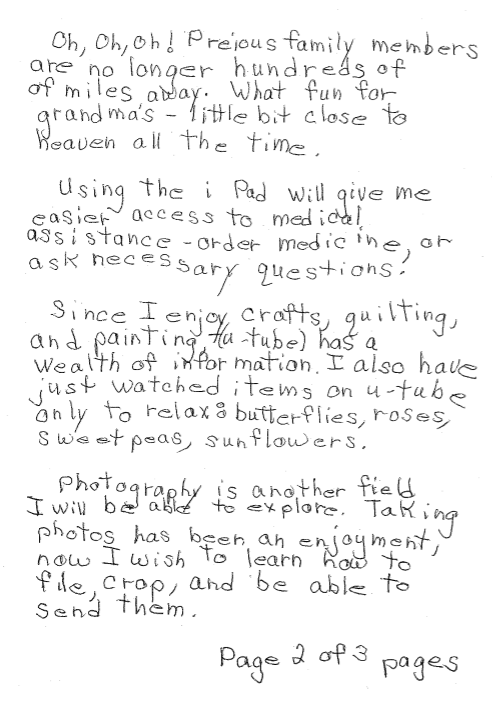 Oh, Oh, Oh! Preious family members
are no longer hundreds of
of miles away. What fun for
grandma's - little bit close to
Heaven all the time.
Using the i Pad will give me
easier access to medical
assistance - order medicine, or
ask necessary questions.
Since I enjoy crafts, quilting,
and painting, (u-tube) has a
wealth of information. I also have
just watched items on u-tube
only to relax: butterflies, roses,
sweet peas, sunflowers.
Photography is another field
I will be able to explore. Taking
photos has been an enjoyment,
now I wish to learn how to
file, crop, and be able to
send them.
Page 2 of 3 pages